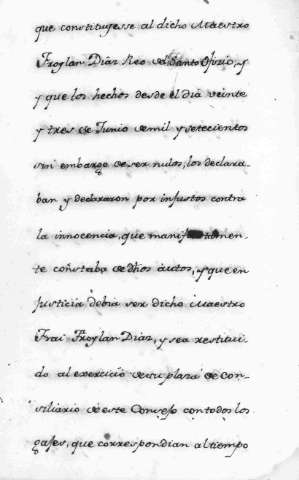 que constituyesse al dicho Maestro
Froylan Diaz Reo del Santo Ofizio, y
y que los hechos desde el dia veinte
y tres de Junio de mil y setecientos
sin embargo de ser nulos, los declara-
ban y declararon por injustos contra
la innocencia, que manifiestamen-
te coñstaba de dhos autos, y que en
Justicia debia ser dicho Maestro
Frai Froylan Diaz, y sea restitui-
do al exercicio de su plaza de Con-
siliario de este Consejo con todos los
gajes, que correspondian al tiempo